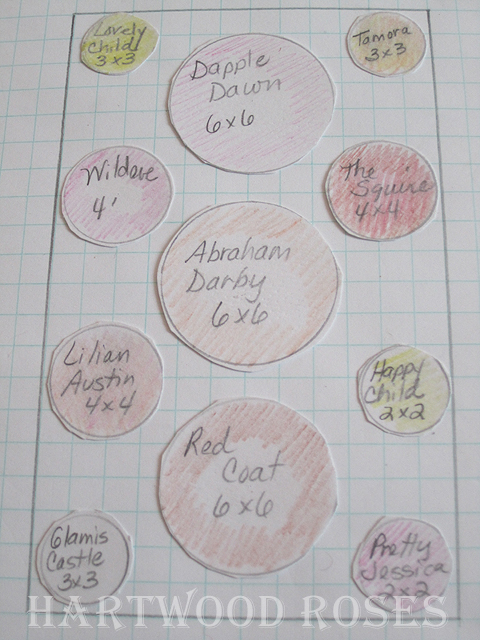 Lovely
Child
3x3
Dapple
Dawn
6x6
Tamora
3x3
Wildeve
4'
the
Squire
4x4
Abraham
Darby
6x6
Lilian
Austin
4x4
Happy
Child
2x2
Red
Coat
6x6
Glamis
Castle
3x3
Pretty
Jessica
2x2
HARTWOOD ROSES